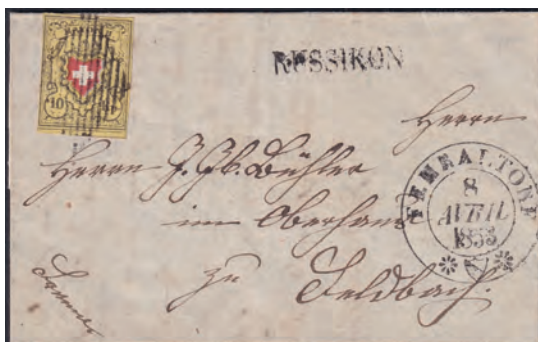 10
RUSSIKON
Herrn
Herrn J. Jb. Bühler
im Oberhaus
zu Feldbach.
FEHRALTORF
8
AVRIL
1853